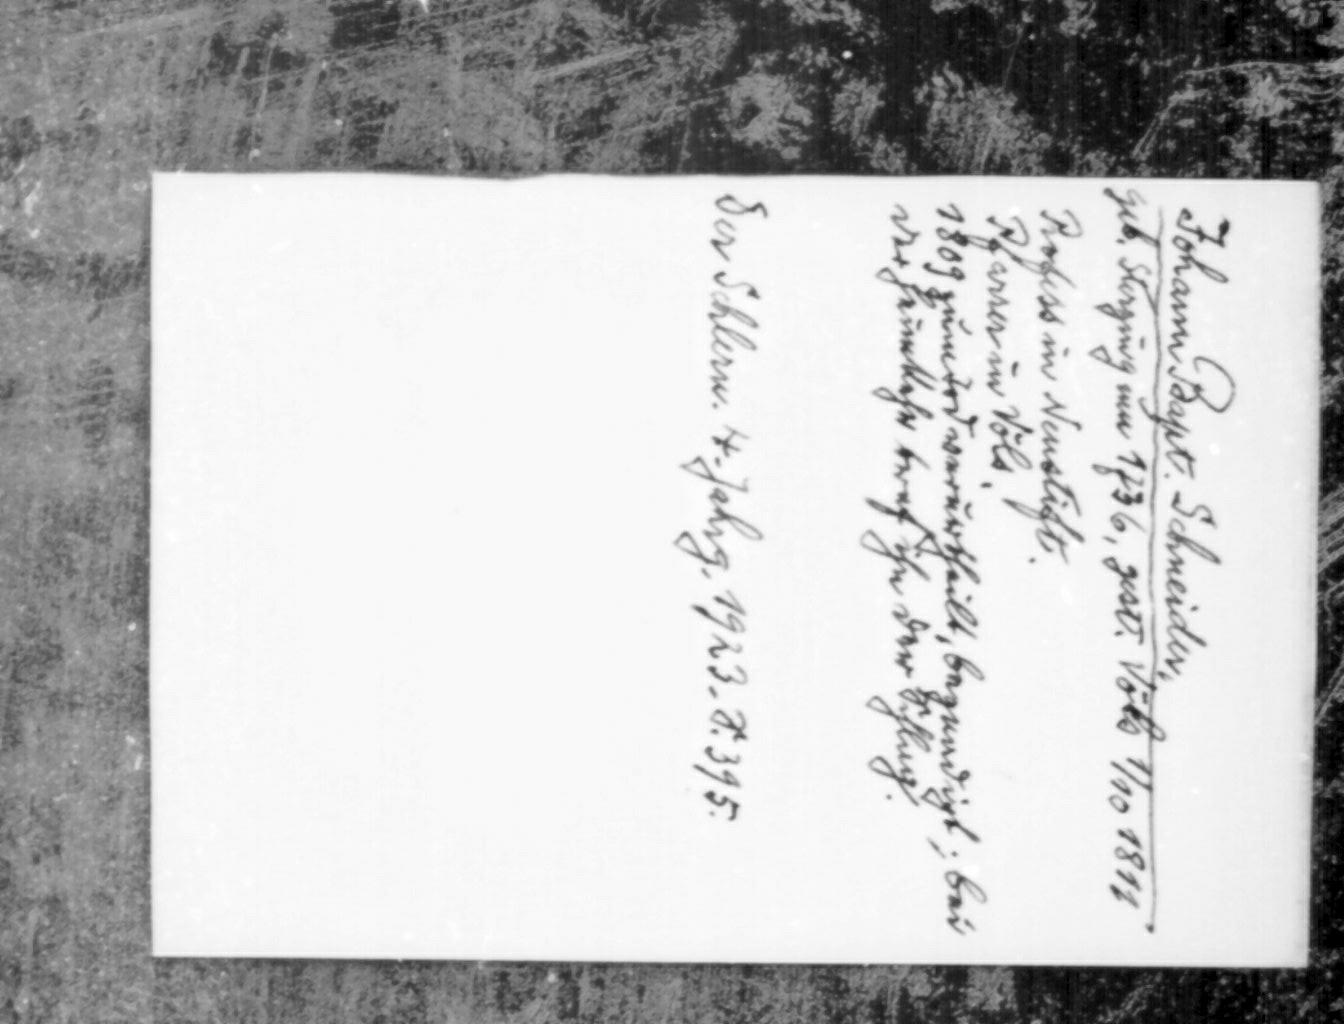 Johann Bapt. Schneider,
geb. Sterzing um 1736, gest. Völs 1/10 1811
Profess in Neustift.
Pfarrer in Völs.
1809 zum Tod verurtheilt, begnadigt; bei
der Heimkehr traf ihn der Schlag.
Der Schlern. 4. Jahrg. 1923. S. 395.